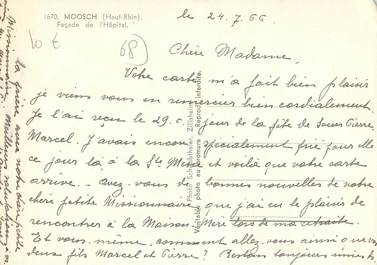 1670. MOOSCH (Haut-Rhin).
Façade de l'Hôpital.
10 €
68
le 24.7.66
Chère Madame,
Votre carte m'a fait bien plaisir
je viens vous en remercier bien cordialement
Je l'ai reçu le 29.6. jour de la fête de Soeur Pierre
Marcel. J'avais encore spécialement prié pour elle
ce jour là à la Ste Messe et voilà que votre carte
arrive. Avez vous de bonnes nouvelles de notre
chère petite Missionnaire que j'ai eu le plaisir de
rencontrer à la Maison Mère lors de ma retraite.
Et vous même, comment allez vous ainsi que vos
deux fils Marcel et Pierre? Restons toujours unies
Véritable photo au bromure - Reprod. interdite.
la prière